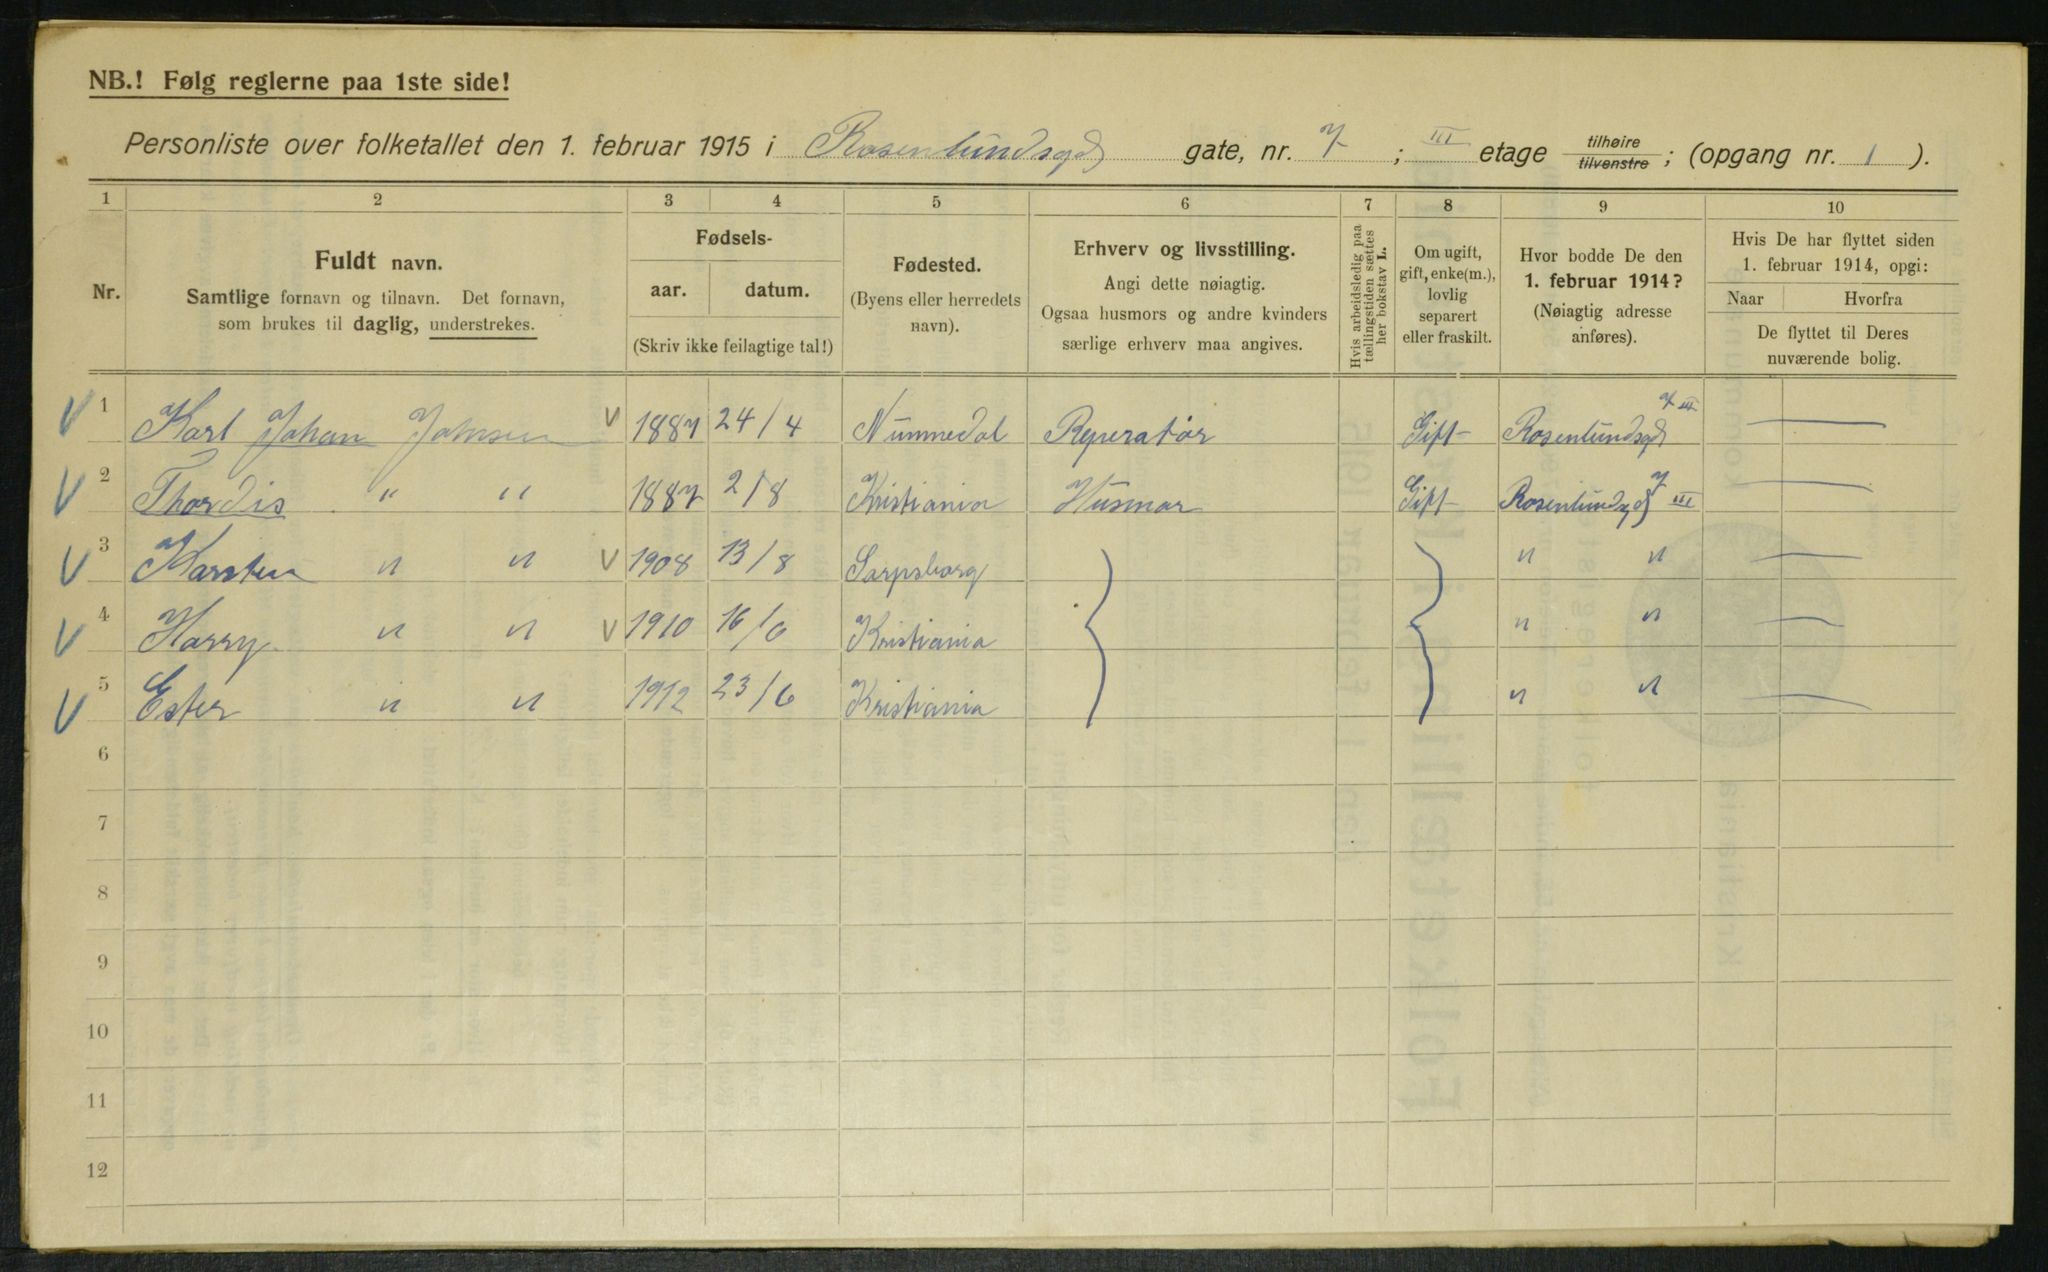 NB.! Følg reglerne paa 1ste side!
Personliste over folketallet den 1. februar 1915 i Rosenlundsgd gate, nr. 7 ; III etage tilhøire tilvenstre ; (opgang nr. 1 ).
1 2 3 4 5 6 7 8 9 10
Nr.
Fuldt navn.
Samtlige fornavn og tilnavn. Det fornavn,
som brukes til daglig, understrekes.
Fødsels-
aar. datum.
(Skriv ikke feilagtige tal!)
Fødested.
(Byens eller herredets
navn).
Erhverv og livsstilling.
Angi dette nøiagtig.
Ogsaa husmors og andre kvinders
særlige erhverv maa angives.
Hvis arbeidsledig paa
tællingstiden sættes
her bokstav L.
Om ugift,
gift, enke(m.),
lovlig
separert
eller fraskilt.
Hvor bodde De den
1. februar 1914?
(Nøiagtig adresse
anføres).
Hvis De har flyttet siden
1. februar 1914, opgi:
Naar Hvorfra
De flyttet til Deres
nuværende bolig.
V 1 Karl Johan Johnsen V 1887 24/4 Nummedal Reperatør Gift Rosenlundsgd 7 III —
V 2 Thordis " " 1887 2/8 Kristiania Husmor Gift Rosenlundsgd 7 III —
V 3 Karsten " " V 1908 13/8 Sarpsborg } } " " —
V 4 Harry " " V 1910 16/6 Kristiania " " —
V 5 Ester " " 1912 23/6 Kristiania " " —
6
7
8
9
10
11
12